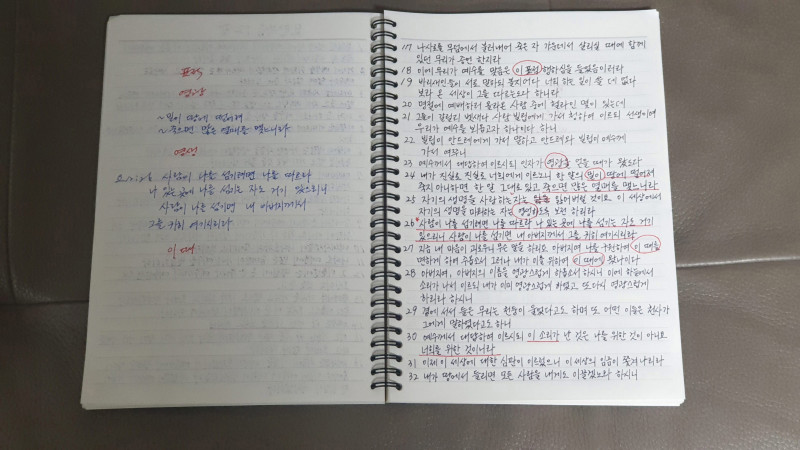 표적
영광
~ 밀이 땅에 떨어져
~ 죽으면 많은 열매를 맺느니라
영생
요12:26 사람이 나를 섬기려면 나를 따르라
나 있는 곳에 나를 섬기는 자도 거기 있으리니
사람이 나를 섬기면 내 아버지께서
그를 귀히 여기시리라
이 때
17 나사로를 무덤에서 불러내어 죽은 자 가운데서 살리실 때에 함께
있던 무리가 증언 한지라
18 이에 무리가 예수를 맞음은 이 표적 행하심을 들었음이러라
19 바리새인들이 서로 말하되 볼지어다 너희 하는 일이 쓸 데 없다
보라 온 세상이 그를 따르는도다 하니라
20 명절에 예배하러 올라온 사람 중에 헬라인 몇이 있는데
21 그들이 갈릴리 벳새다 사람 빌립에게 가서 청하여 이르되 선생이여
우리가 예수를 뵈옵고자 하나이다 하니
22 빌립이 안드레에게 가서 말하고 안드레와 빌립이 예수께
가서 여쭈니
23 예수께서 대답하여 이르시되 인자가 영광을 얻을 때가 왔도다
24 내가 진실로 진실로 너희에게 이르노니 한 알의 밀이 땅에 떨어져
죽지 아니하면 한 알 그대로 있고 죽으면 많은 열매를 맺느니라
25 자기의 생명을 사랑하는 자는 잃어버릴 것이요 이 세상에서
자기의 생명을 미워하는 자는 영생하도록 보전 하리라
26 사람이 나를 섬기려면 나를 따르라 나 있는 곳에 나를 섬기는 자도 거기
있으리니 사람이 나를 섬기면 내 아버지께서 그를 귀히 여기시리라
27 지금 내 마음이 괴로우니 무슨 말을 하리요 아버지여 나를 구원하여 이 때를
면하게 하여 주옵소서 그러나 내가 이를 위하여 이 때에 왔나이다
28 아버지여, 아버지의 이름을 영광스럽게 하옵소서 하시니 이에 하늘에서
소리가 나서 이르되 내가 이미 영광스럽게 하였고 또 다시 영광스럽게
하리라 하시니
29 곁에 서서 들은 무리는 천둥이 울었다고도 하며 또 어떤 이들은 천사가
그에게 말하였다고도 하니
30 예수께서 대답하여 이르시되 이 소리가 난 것은 나를 위한 것이 아니요
너희를 위한 것이니라
31 이제 이 세상에 대한 심판이 이르렀으니 이 세상의 임금이 쫓겨 나리라
32 내가 땅에서 들리면 모든 사람을 내게로 이끌겠노라 하시니